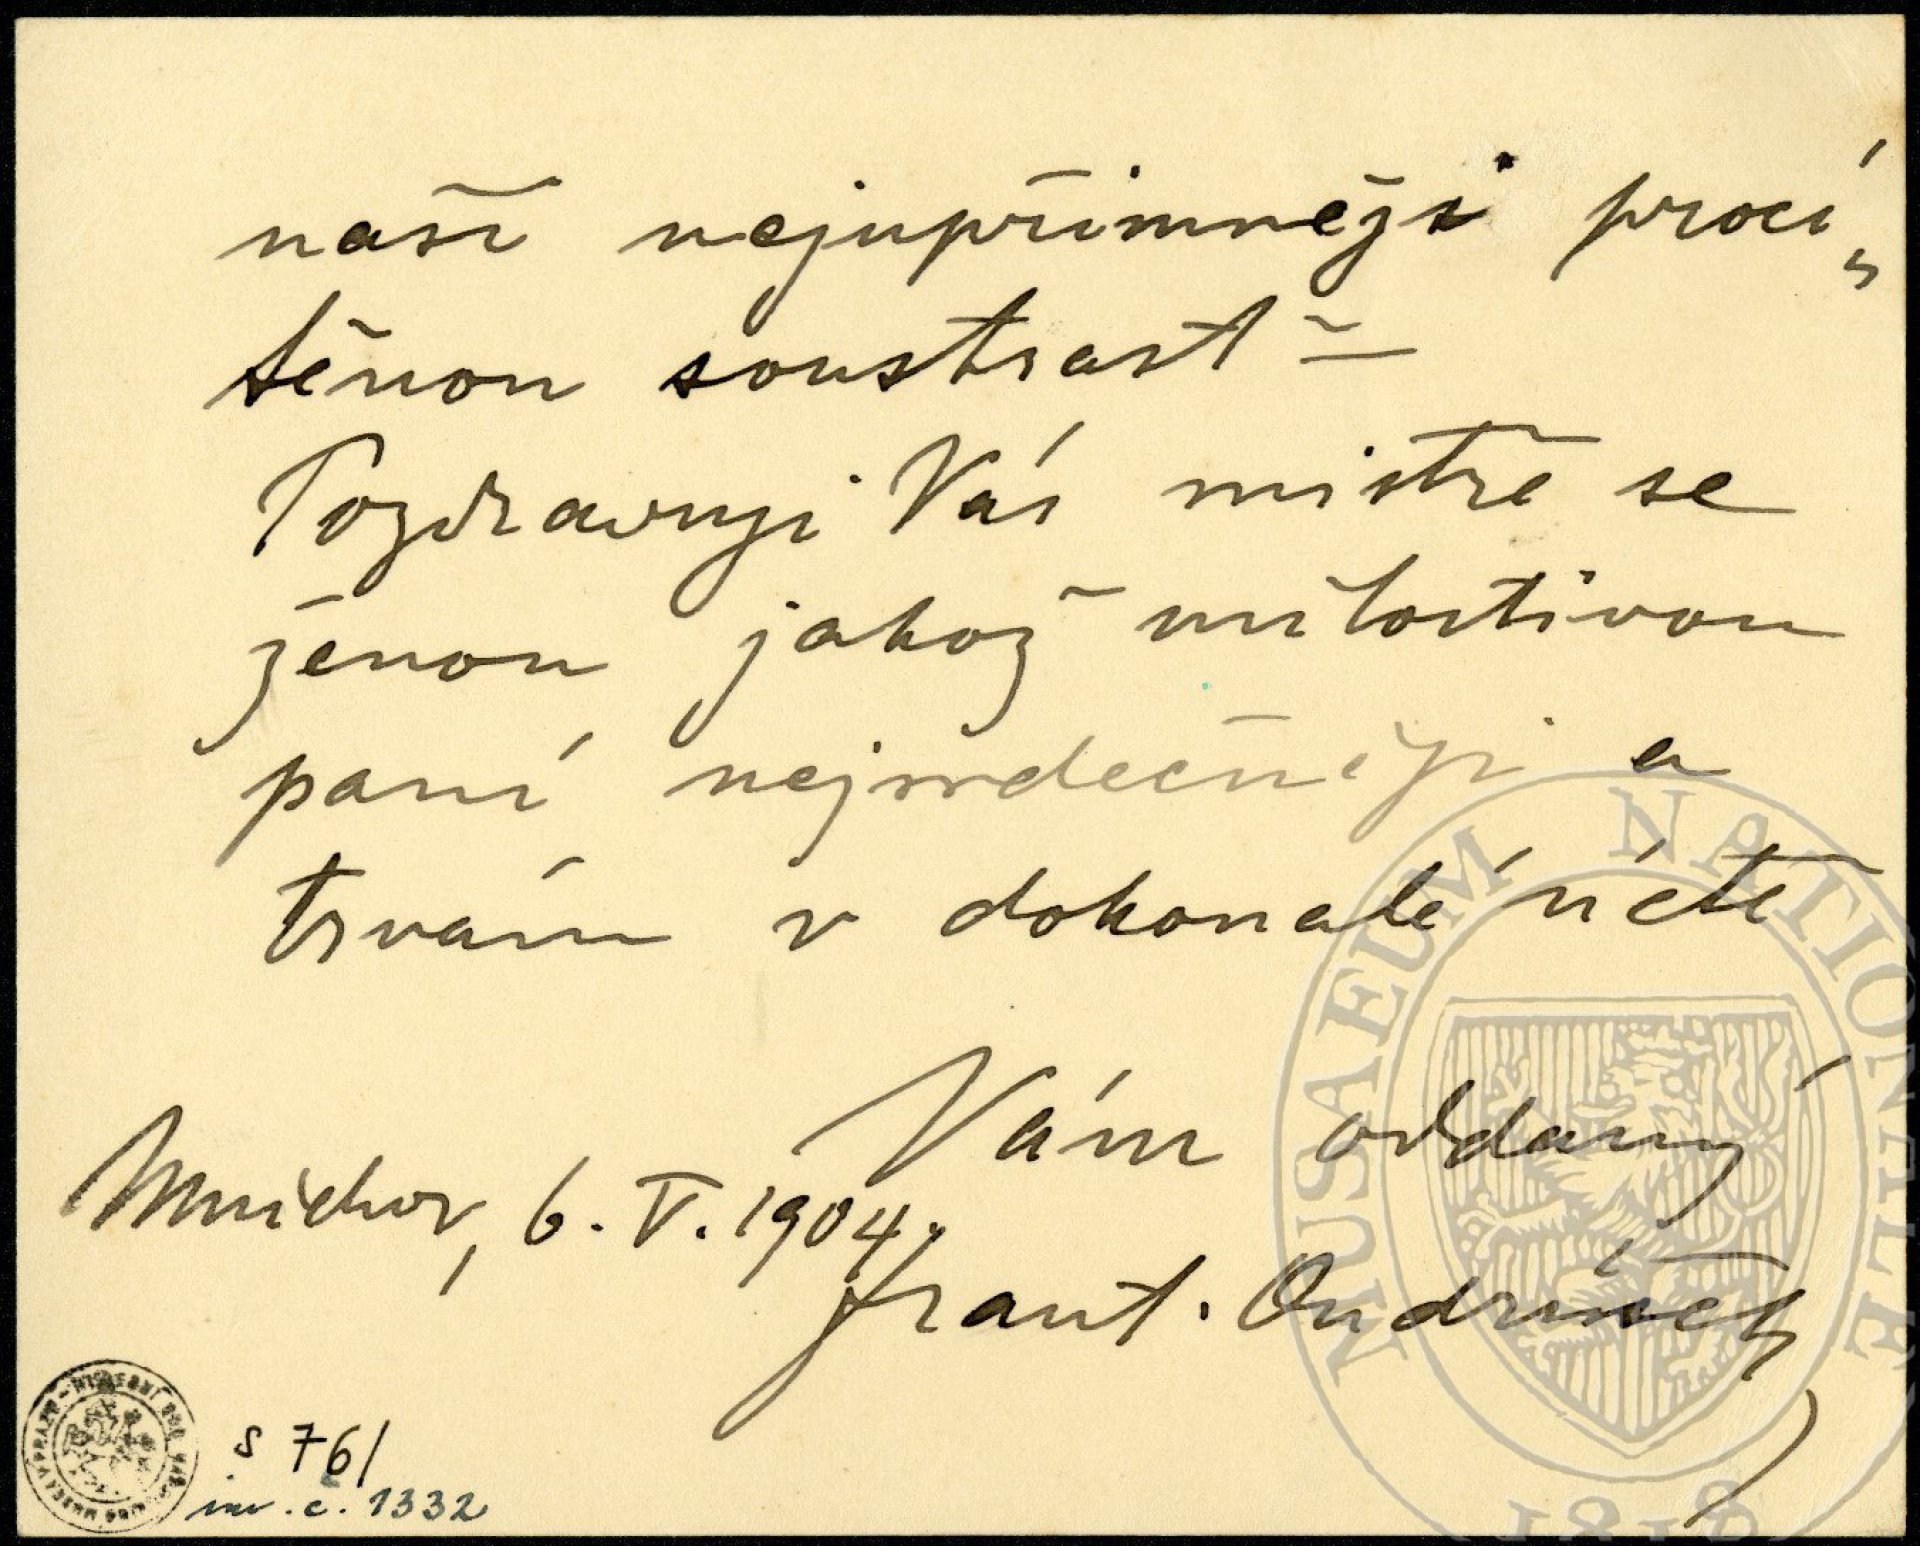 naší nejupřímněji procí„
těnou soustrast –
Pozdravuji Vás mistře se
ženou jakož milostivou
paní nejsrdečněji a
trvám v dokonalé úctě
Vám oddaný
Mnichov, 6. V. 1904.
Frant. Ondříček
MUSAEUM NATIONALE
1818
S 761
inv. č. 1332